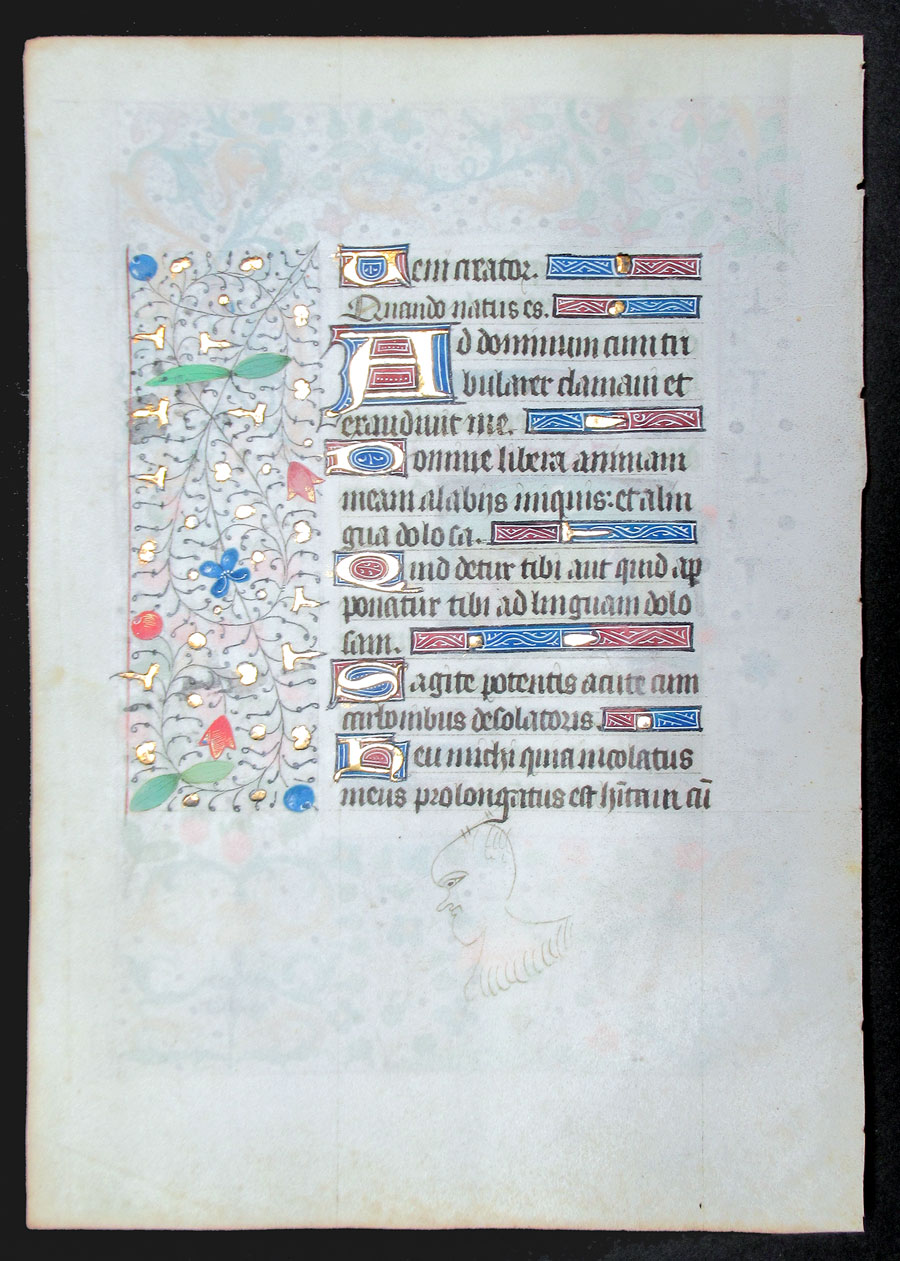 Veni creator.
Quando natus es.
Ad dominum cum tri
bularer clamaui et
exaudiuit me.
Domine libera animam
meam a labijs iniquis: et a lin
gua dolosa.
Quid detur tibi aut quid ap
ponatur tibi ad linguam dolo
sam.
Sagite potentis acute cum
carbonibus desolatoris.
Heu michi quia incolatus
meus prolongatus est hītaui cū